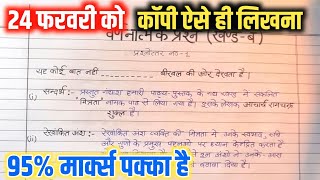 24 फरवरी को कॉपी ऐसे ही लिखना
वर्णनात्मक प्रश्न (खण्ड-ब)
प्रश्नोत्तर नं०-1
यह कोई बात नहीं ............ बीरबल की ओर देखता है।
(i) सन्दर्भ:- प्रस्तुत गद्यांश हमारी पाठ्य पुस्तक के गद्य खण्ड में संकलित
'मित्रता' नामक पाठ से लिया गया है। इसके लेखक आचार्य रामचन्द्र
शुक्ल है।
(ii) रेखांकित अंश:- रेखांकित अंश व्यक्ति की मित्रता में उनके स्वभाव, रुचि
और गुणों के प्रमुख पहलुओं पर ध्यान केन्द्रित करता है
95% मार्क्स पक्का है